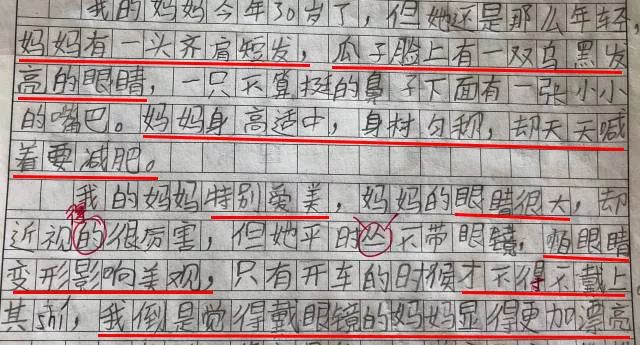 我的妈妈今年30岁了，但她还是那么年轻，
妈妈有一头齐肩短发，瓜子脸上有一双乌黑发
亮的眼睛，一只不算挺的鼻子下面有一张小小
的嘴巴。妈妈身高适中，身材匀称，却天天喊
着要减肥。
我的妈妈特别爱美，妈妈的眼睛很大，却
得
近视的很厉害，但她平时从不带眼镜，怕眼睛
变形影响美观，只有开车的时候才不得不戴上
其shí，我倒是觉得戴眼镜的妈妈显得更加漂亮